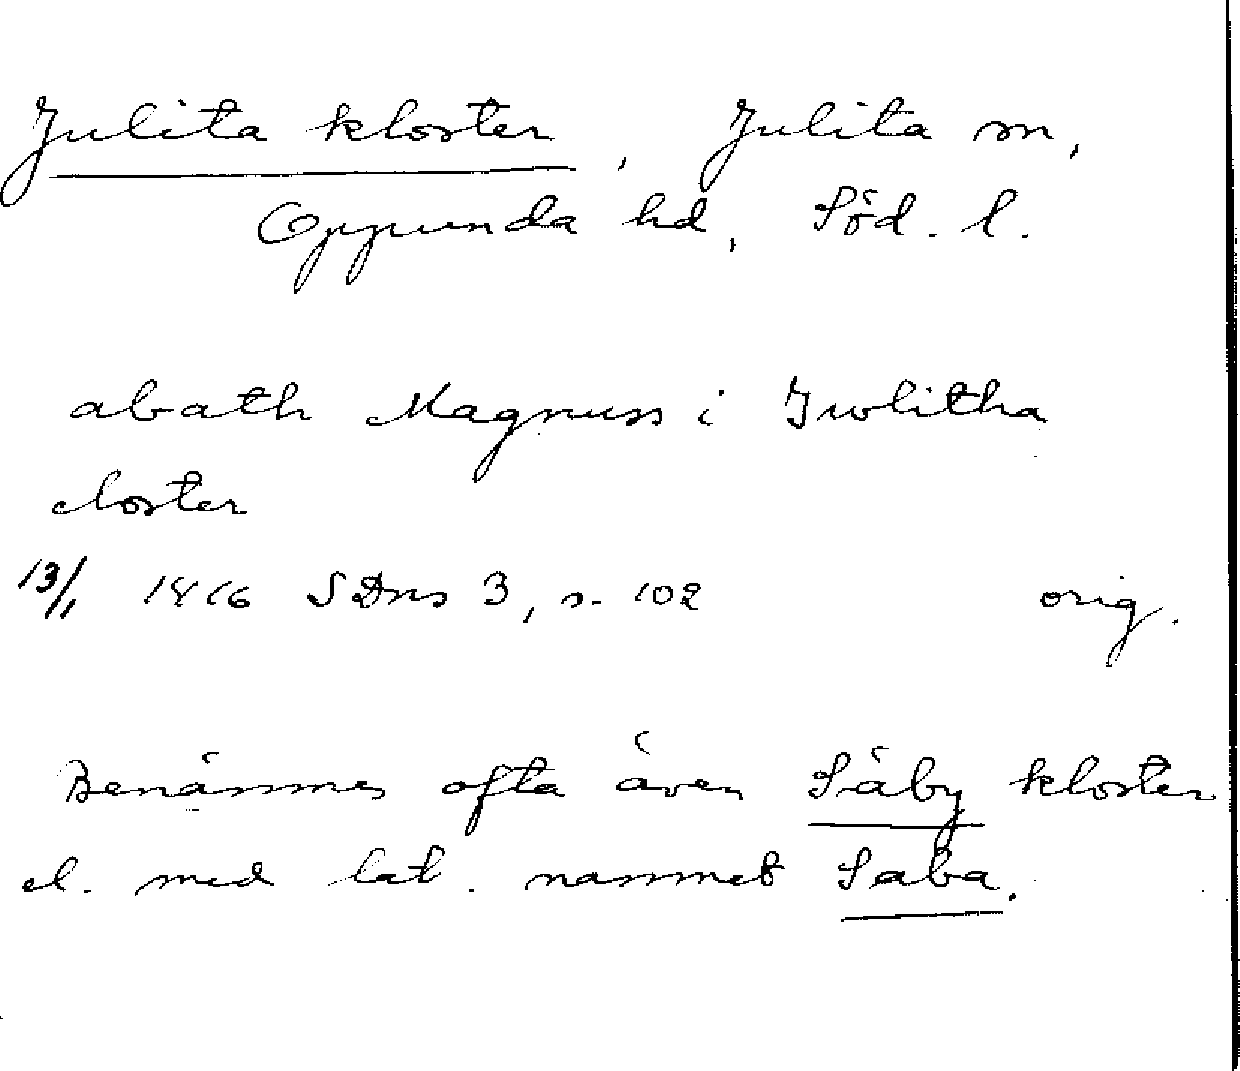 Julita kloster, Julita sn,
Oppunda hd, Söd. l.
abath Magnus i Iwlitha
closter
13/1 1416 SDns 3, s. 102 orig.
Benämnes ofta även Säby kloster
el. med lat. namnet Saba.